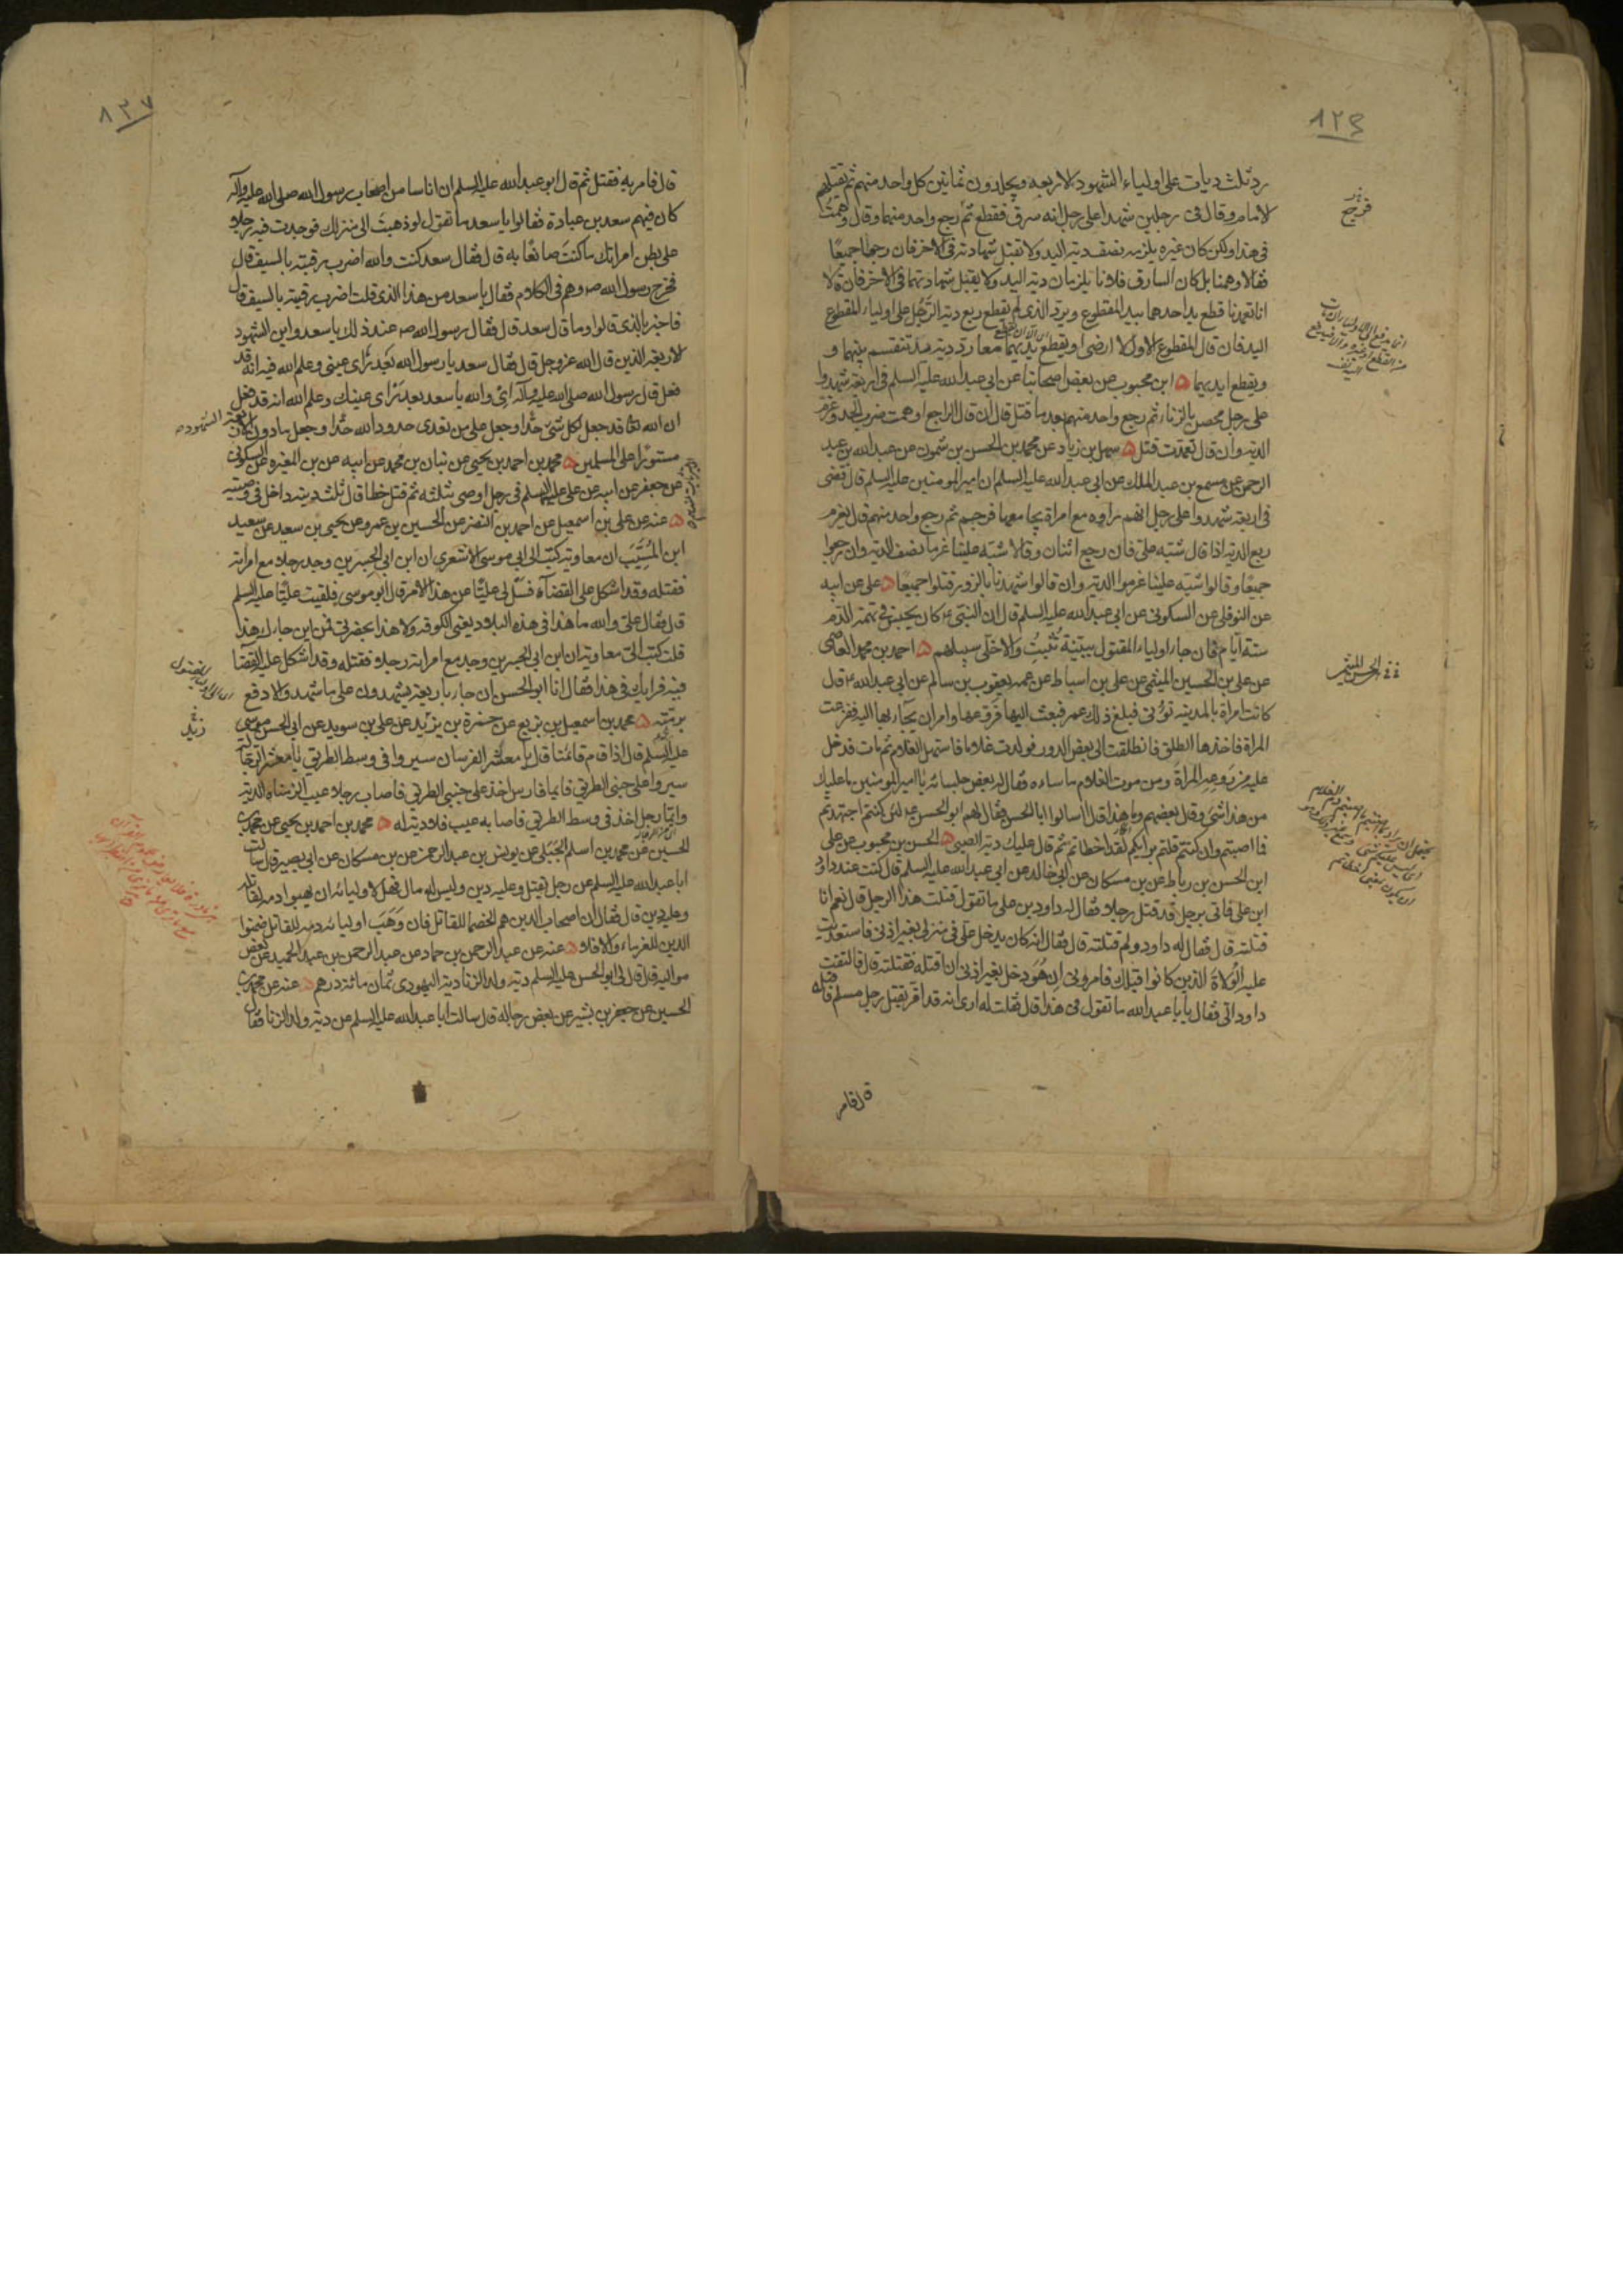 رد ثلث ديات على اولياء الشهود الاربعه ويجلدون ثمانين كل واحد منهم ثم يقتلهم
الامام وقال فى رجلين شهدا على رجل انه سرق فقطع ثم رجع واحد منهما وقال وهمت
فى هذا ولكن كان غيره يلزمه نصف دية اليد ولا تقبل شهادته فى الاخر فان رجعا جميعًا
فقالا وهمنا بل كان السارق فلانا يلزمان دية اليد ولا يقبل شهادتهما فى الاخر فان قالا
انا تعمدنا قطع يد احدهما بيد المقطوع ويرد الذى لم يقطع ربع دية الرَّجُل على اولياء المقطوع
اليد فان قال المقطوع الاول لا ارضى او يقطع ايديهما معا رد دية يد تنقسم بينهما و
ويقطع ايديهما ه ابن محبوب عن بعض اصحابنا عن ابى عبد الله عليه السلم فى اربعة شهدوا
على رجل محصن بالزناء ثم رجع واحد منهم بعد ما قتل قال ان قال الراجع اوهمت ضرب الحد وغرم
الدية وان قال تعمدت قتل ه سهل بن زياد عن محمد بن الحسن بن شمون عن عبد الله بن عبد
الرحمن عن مسمع بن عبد الملك عن ابى عبد الله عليه السلم ان امير المومنين عليه السلم قال قضى
فى اربعة شهدوا على رجل انهم راوه مع امراة يجامعها فرجم ثم رجع واحد منهم قال يغرم
ربع الدية اذا قال شبه على فان رجع اثنان وقالا شبه علينا غرما نصف الدية وان رجعوا
جميعًا وقالوا شبه علينا غرموا الدية وان قالوا شهدنا بالزور قتلوا جميعًا ه على عن ابيه
عن النوفلى عن السكونى عن ابى عبد الله عليه السلم قال ان النبى ع كان يحبس فى تهمة الدم
ستة ايام فان جاء اولياء المقتول ببينة تُثبِتُ والا خلى سبيلهم ه احمد بن محمد العاصمى
عن على بن الحسين الميثمى عن على بن اسباط عن عمه يعقوب بن سالم عن ابى عبد الله ع قال
كانت امراة بالمدينة تؤتى فبلغ ذلك عمر فبعث اليها فَرَوعها وامر ان يُجاء بها اليه ففزعت
المراة فاخذها الطلق فانطلقت الى بعض الدور فولدت غلاما فاستهل الغلام ثم مات فدخل
عليه من رَوعه المراة ومن موت الغلام ما ساءه فقال له بعض جلسائه يا امير المومنين ما عليك
من هذا شئ وقال بعضهم وما هذا قال اسالوا ابا الحسن فقال لهم ابو الحسن ع لئن كنتم اجتهدتم
فما اصبتم وان كنتم قلتم برايكم لقد اخطاتم ثم قال عليك دية الصبى ه الحسن بن محبوب عن على
ابن الحسن بن رباط عن بن مسكان عن ابى خالد عن ابى عبد الله عليه السلم قال كنت عند داود
ابن على فاتى برجل قد قتل رجلا فقال له داود بن على ما تقول قتلت هذا الرجل قال نعم انا
قتلته قال فقال له داود ولم قتلته قال فقال انه كان يدخل على فى منزلى بغير اذنى فاستعديت
عليه الوُلاة الذين كانوا قبلك فامرونى ان هُوَ دخل بغير اذنى ان اقتله فقتلته قال فالتفت
داود الى فقال يا ابا عبد الله ما تقول فى هذا قال فقلت له ارى انه قد اقر بقتل رجل مسلم فاقتله
قال فامر
قال فامر به فقتل ثم قال ابو عبد الله عليه السلم ان اناسا من اصحاب رسول الله صلى الله عليه وآله
كان فيهم سعد بن عبادة فقالوا يا سعد ما تقول لو ذهبت الى منزلك فوجدت فيه رجلا
على بطن امراتك ما كنت صانعًا به قال فقال سعد كنت والله اضرب رقبته بالسيف قال
فخرج رسول الله ص وهم فى الكلام فقال يا سعد من هذا الذى قلت اضرب رقبته بالسيف قال
فاخبر بالذى قالوا وما قال سعد قال فقال رسول الله ص عند ذلك يا سعد واين الشهود
الاربعة الذين قال الله عز وجل قال فقال سعد يا رسول الله بَعد رَأى عينى وعلم الله فيه انه قد
فعل قال رسول الله صلى الله عليه وآله اى والله يا سعد بعد رَاى عينك وعلم الله انه قد فعل
ان الله تعالى قد جعل لكل شئ حدًا وجعل على من تعدى حدود الله حدًا وجعل ما دون الاربعة الشهود
مستورًا على المسلمين ه محمد بن احمد بن يحيى عن بنان بن محمد عن ابيه عن بن المغيرة عن السكونى
عن جعفر عن ابيه عن على عليهما السلم فى رجل اوصى بثلثه ثم قتل خطا قال ثلث ديته داخل فى وصيته
ه عنه عن على بن اسمعيل عن احمد بن النضر عن الحسين بن عمرو عن يحيى بن سعيد عن سعيد
ابن المُسَيَّب ان معاوية كتب الى ابى موسى الاشعرى ان ابن ابى الجسرين وجد رجلا مع امراته
فقتله وقد اشكل على القضاء فسل لى عليًا عن هذا الامر قال ابو موسى فلقيت عليًا عليه السلم
قال فقال على والله ما هذا فى هذه البلاد يعنى الكوفة ولا هذا بحضرتى فمن اين جاءك هذا
قلت كتب الىّ معاوية ان ابن ابى الجسرين وجد مع امراته رجلا فقتله وقد اشكل عليه القضا
فيه فرايك فى هذا فقال انا ابو الحسن ان جاء باربعة يشهدون على ما شهد والا دفع
برمته ه محمد بن اسمعيل بن بزيع عن حمزة بن يزيد عن على بن سويد عن ابى الحسن موسى
عليه السلم قال اذا قام قائمنا قال يا معشر الفرسان سيروا فى وسط الطريق يا معشر الرجالة
سيروا على جنبى الطريق فايما فارس اخذ على جنبى الطريق فاصاب رجلا عيب الزمناه الدية
وايما رجل اخذ فى وسط الطريق فاصابه عيب فلا دية له ه محمد بن احمد بن يحيى عن محمد بن
الحسين عن محمد بن اسلم الجَبَلى عن يونس بن عبد الرحمن عن بن مسكان عن ابى بصير قال سالت
ابا عبد الله عليه السلم عن رجل يقتل وعليه دين وليس له مال فهل لاوليائه ان يهبوا دمه لقاتله
وعليه دين قال فقال ان اصحاب الدين هم الخصما للقاتل فان وَهَبَ اوليائه دمه للقاتل ضمنوا
الدين للغرماء والا فلا ه عنه عن عبد الرحمن بن حماد عن عبد الرحمن بن عبد الحميد عن بعض
مواليه قال قال لى ابو الحسن عليه السلم دية ولد الزنا دية اليهودى ثمان مائة درهم ه عنه عن محمد بن
الحسين عن جعفر بن بشير عن بعض رجاله قال سالت ابا عبد الله عليه السلم عن دية ولد الزنا فقال